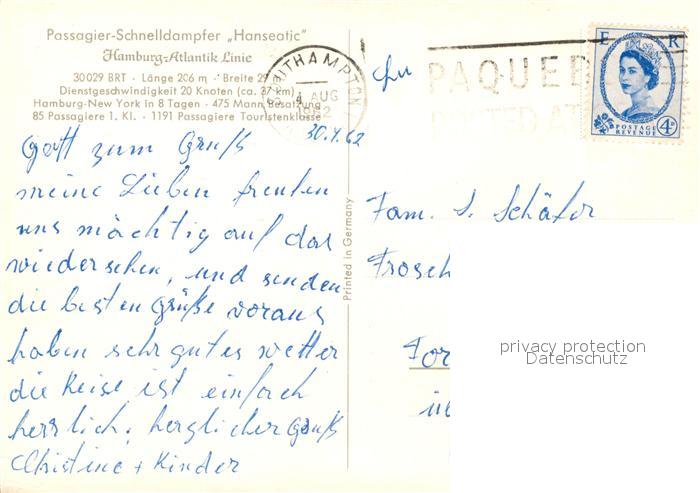 Passagier-Schnelldampfer „Hanseatic"
Hamburg-Atlantik Linie
30029 BRT · Länge 206 m · Breite 29
Dienstgeschwindigkeit 20 Knoten (ca. 37 km)
Hamburg-New York in 8 Tagen · 475 Mann Besatzung
85 Passagiere 1. Kl. · 1191 Passagiere Touristenklasse
SOUTHAMPTON
AUG
PAQUEB
POSTED AT
E R
POSTAGE
REVENUE
4D
Gott zum Gruß
meine Lieben freuten
uns mächtig auf das
wiedersehen, und senden
die besten Grüße voraus
haben sehr gutes wetter
die Reise ist einfach
herrlich, herzlicher Gruß
Christine + Kinder
Printed in Germany
An
Fam. S. Schäfer
Frosch
For
privacy protection
Datenschutz